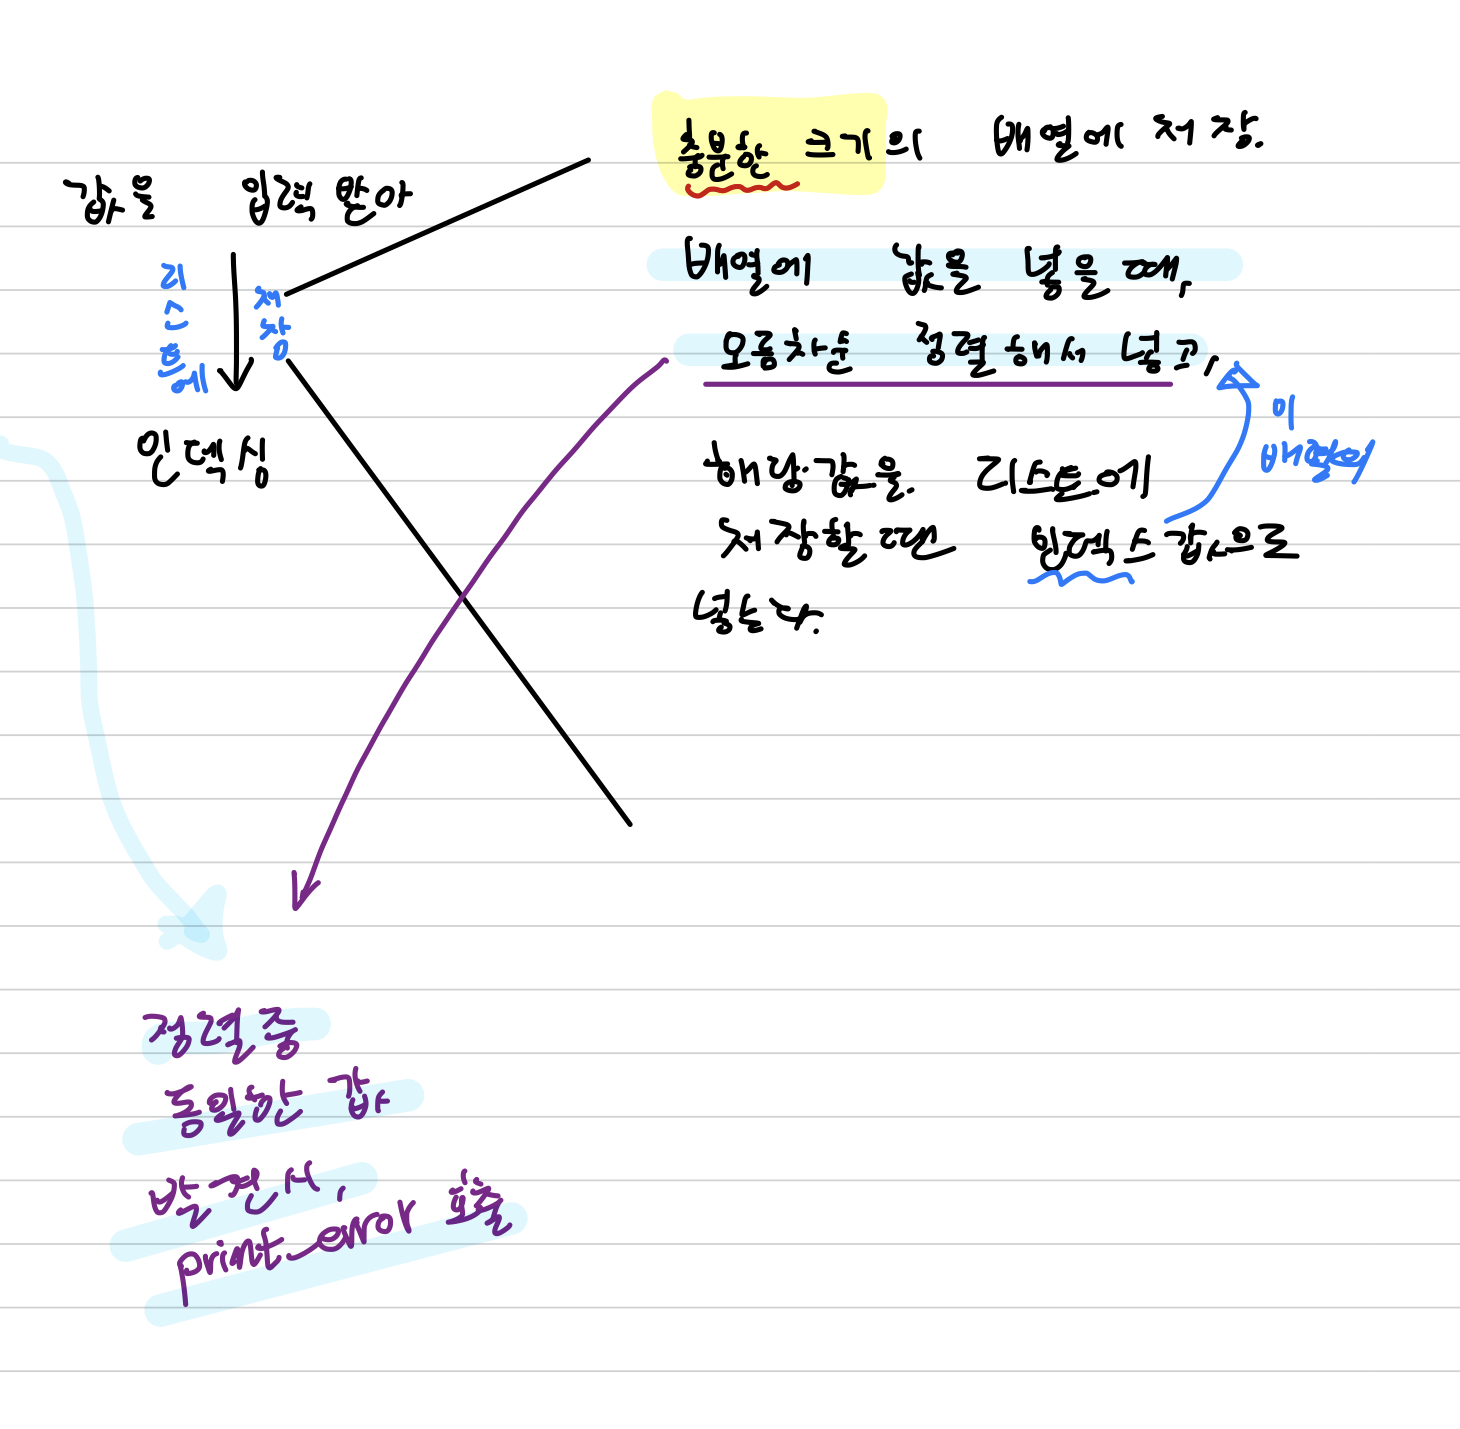 충분한 크기의 배열에 저장.
값을 입력 받아
배열에 값을 넣을 때,
리스트에
저장
오름차순 정렬해서 넣고,
이
배열의
인덱싱
해당 값을. 리스트에
저장할 땐 인덱스 값으로
넣는다.
정렬 중
동일한 값
발견 시,
print_error 호출